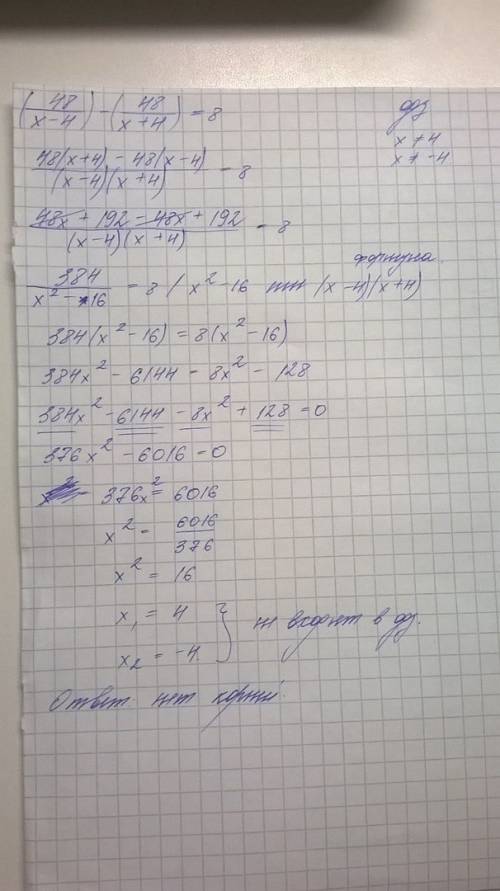 (48/(x-4)) - (48/(x+4)) = 8
одз
x ≠ 4
x ≠ -4
(48(x+4) - 48(x-4))/((x-4)(x+4)) = 8
(48x + 192 - 48x + 192)/((x-4)(x+4)) = 8
формула
384/(x² - 16) = 8 / x² - 16 (x-4)(x+4)
384(x² - 16) = 8(x² - 16)
384x² - 6144 = 8x² - 128
384x² - 6144 - 8x² + 128 = 0
376x² - 6016 = 0
376x² = 6016
x² = 6016/376
x² = 16
x₁ = 4
x₂ = -4
} не входят в одз.
Ответ нет корней.